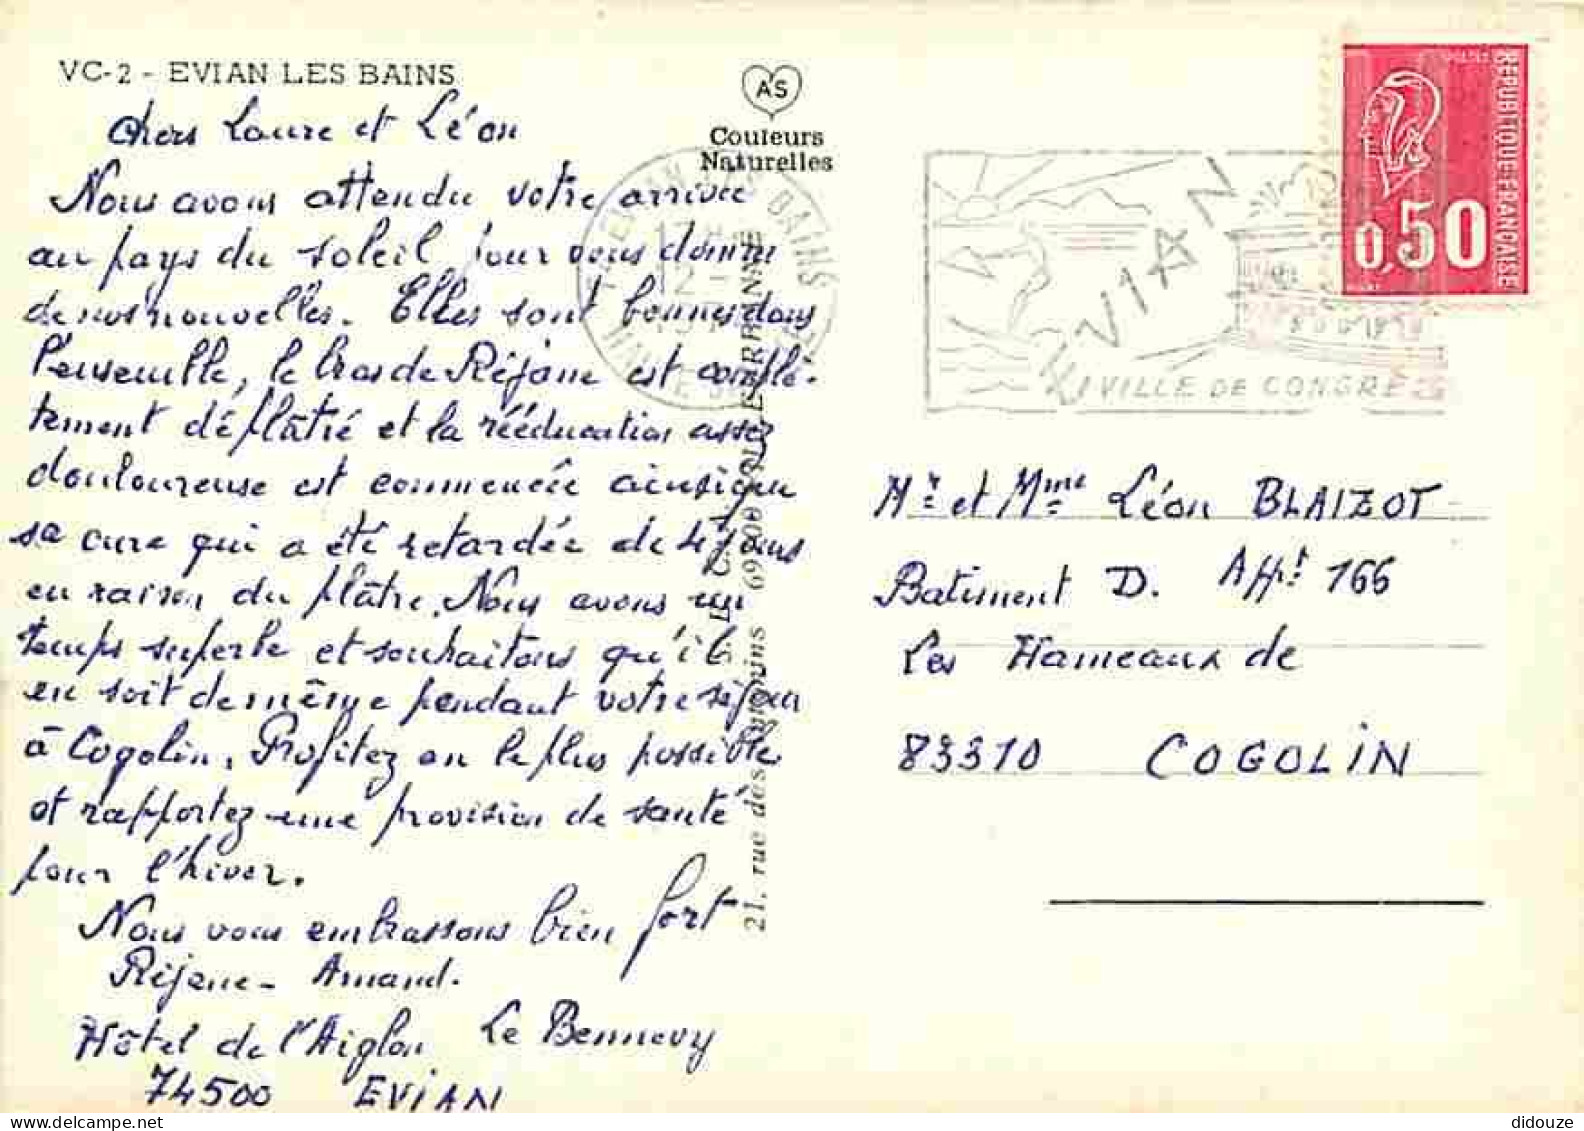 VC-2 - EVIAN LES BAINS
Chers Laure et Léon
Nous avons attendu votre arrivée
au pays du soleil pour vous donner
de nos nouvelles. Elles sont bonnes dans
l'ensemble, le bras de Réjane est complè-
tement déplâtré et la rééducation assez
douloureuse est commencée ainsi que
sa cure qui a été retardée de 4 jours
en raison du plâtre. Nous avons un
temps superbe et souhaitons qu'il
en soit de même pendant votre séjour
à Cogolin. Profitez en le plus possible
et rapportez une provision de santé
pour l'hiver.
Nous vous embrassons bien fort
Réjane - Armand.
Le Bennevy
Hôtel de l'Aiglon
74500 EVIAN
AS
Couleurs
Naturelles
21, rue des
EVIAN
VILLE DE CONGRES
REPUBLIQUE FRANÇAISE
0,50
Mr et Mme Léon BLAIZOT
Batiment D. Appt 166
Les Hameaux de
83310 COGOLIN
didouze